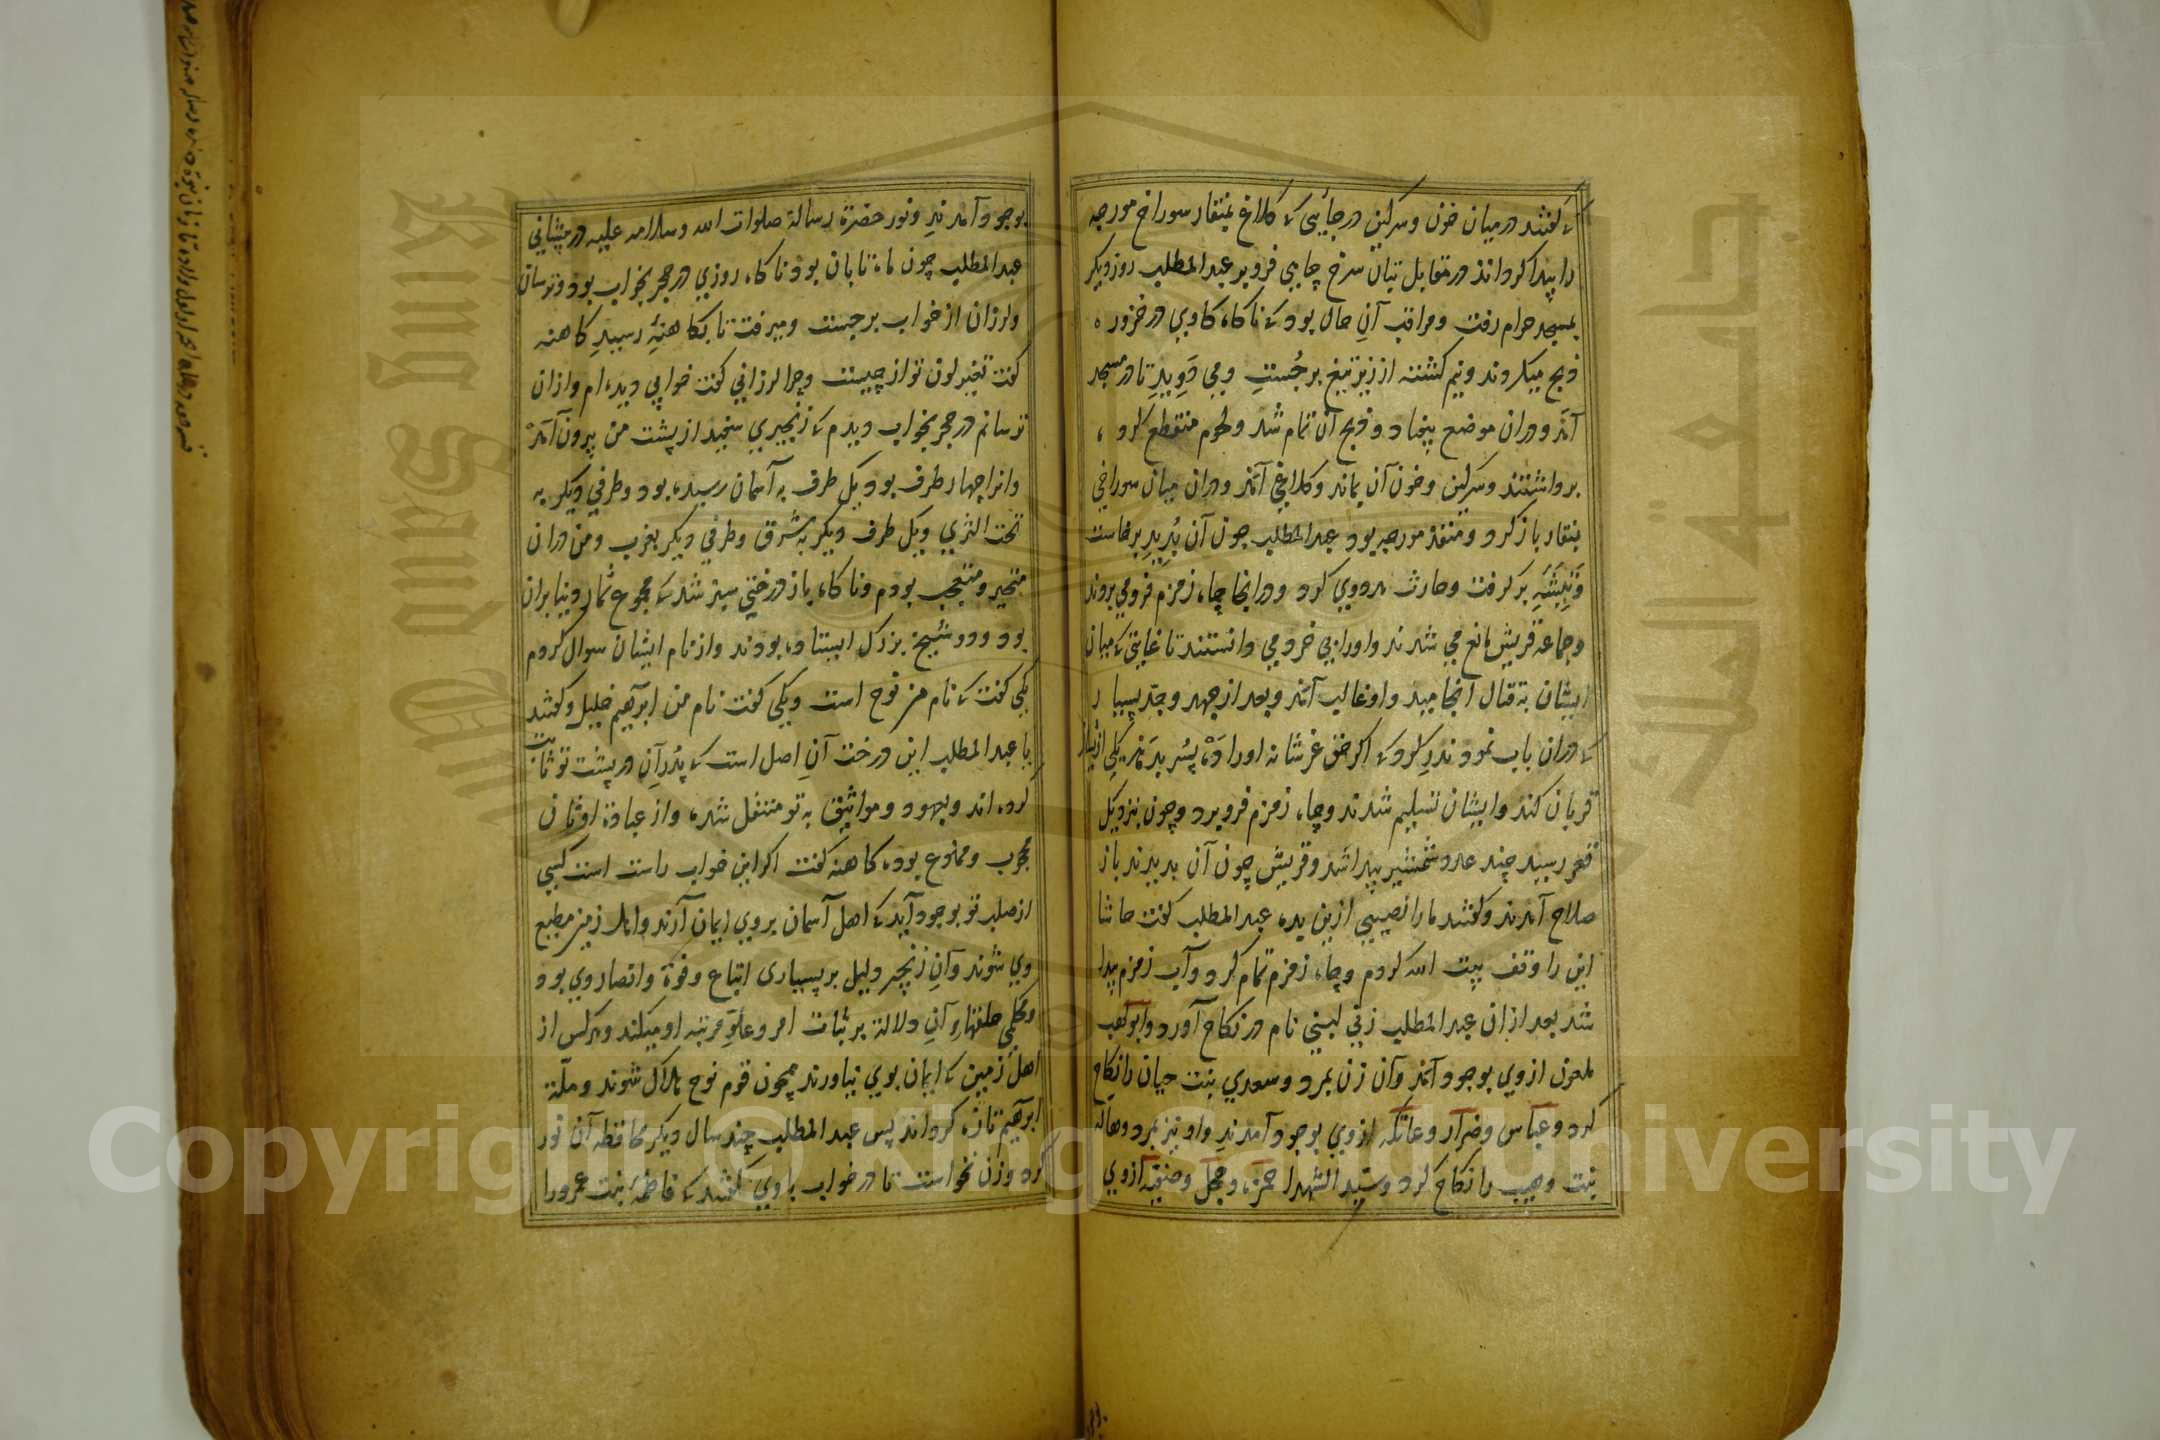 که گفتند در میان خون و سرگین در جائی که کلاغ بمنقار سوراخ مورچه
را پیدا گرداند در مقابل بتان سرخ چاهی فرو بر عبدالمطلب روز دیگر
بمسجد حرام رفت و مراقب آن حال بود که ناکاه کاوی در خزوره
ذبح میکردند و نیم کشته از زیر تیغ برجُست و می دَوید تا در مسجد
آمد و دران موضع بیفتاد و ذبح آن تمام شد و لحوم منقطع کرده
برداشتند و سرگین و خون آن بماند و کلاغی آمد و دران میان سوراخی
بمنقار باز کرد و منفذ مورچه بود عبدالمطلب چون آن بدید برخاست
وَ تیشَه بر گرفت و حارث مددوی کرد و درانجا چاه زمزم فرو می بردند
و جماعة قریش مانع می شدند و او را بی خرد می دانستند تا غایتی که میان
ایشان به قتال انجامید و او غالب آمد و بعد از جهد و جد بسیار
که دران باب نمودند نذر کرد که اگر حق عز شانه او را دَه پسر بدهد یکی از ایشانرا
قربان کند و ایشان تسلیم شدند و چاه زمزم فرو برد و چون بنزدیک
قعر رسید چند عدد شمشیر پیدا شد و قریش چون آن بدیدند باز
صلاح آمدند و گفتند ما را نصیبی ازین بده عبدالمطلب گفت حاشا
این را وقف بیت الله کردم و چاه زمزم تمام کرد و آب زمزم پیدا
شد بعد ازان عبدالمطلب زنی لبنی نام در نکاح آورد و ابولهب
ملعون از وی بوجود آمد و آن زن بمرد و سعدی بنت حیان را نکاح
کرد و عباس و ضرار و عاتکه از وی بوجود آمدند و او نیز بمرد و هاله
بنت وهیب را نکاح کرد و سید الشهدا حمزه و حجل و صفیه از وی
بوجود آمدند و نور حضرة رسالة صلوات الله و سلامه علیه در پیشانی
عبدالمطلب چون ماه تابان بود ناکاه روزی در حجر بخواب بود و ترسان
و لرزان از خواب برجست و میرفت تا بکاهنهٔ رسید کاهنه
گفت تغیر لون تو از چیست و چرا لرزانی گفت خوابی دیده ام و ازان
ترسانم در حجر بخواب دیدم که زنجیری سفید از پشت من بیرون آمد
و انرا چهار طرف بود یک طرف به آسمان رسیده بود و طرفی دیگر به
تحت الثری و یک طرف دیگر به شرق و طرفی دیگر بغرب و من دران
متحیر و متعجب بودم و ناکاه باز درختی سبز شد که مجموع ثمار دنیا بران
بود و دو شیخ بزرگ ایستاده بودند و از نام ایشان سوال کردم
یکی گفت که نام من نوح است و یکی گفت نام من ابرهیم خلیل و گفتند
یا عبدالمطلب این درخت آن اصل است که پدران در پشت تو ثابت
کرده اند و عهود و مواثیق به تو منتقل شده و از عبادة اوثان
محجوب و ممنوع بوده کاهنه گفت اگر این خواب راست است کسی
از صلب تو بوجود آید که اهل آسمان بروی ایمان آرند و اهل زمین مطیع
وی شوند و آن زنجیر دلیل بر بسیاری اتباع و قوة و انصار وی بود
و محکمی حلقهاء آن دلالة بر ثبات امر و علو مرتبه او میکند و هرکس از
اهل زمین که ایمان بوی نیاورند همچون قوم نوح هلاک شوند و ملة
ابرهیم تازه کرداند پس عبدالمطلب چند سال دیگر محافظه آن نور
کرد و زن نخواست تا در خواب با وی گفتند که فاطمه بنت عمرو را
Copyright © King Saud University
King Saud University
جامعة الملك سعود